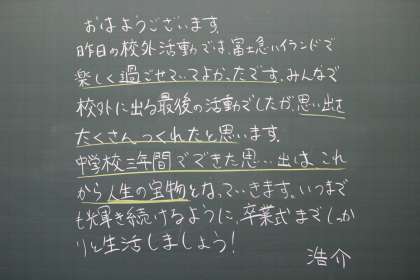 おはようございます。
昨日の校外活動では、富士急ハイランドで
楽しく過ごせていてよかったです。みんなで
校外に出る最後の活動でしたが、思い出を
たくさんつくれたと思います。
中学校三年間でできた思い出は、これ
から人生の宝物となっていきます。いつまで
も輝き続けるように、卒業式までしっか
りと生活しましょう!
浩介